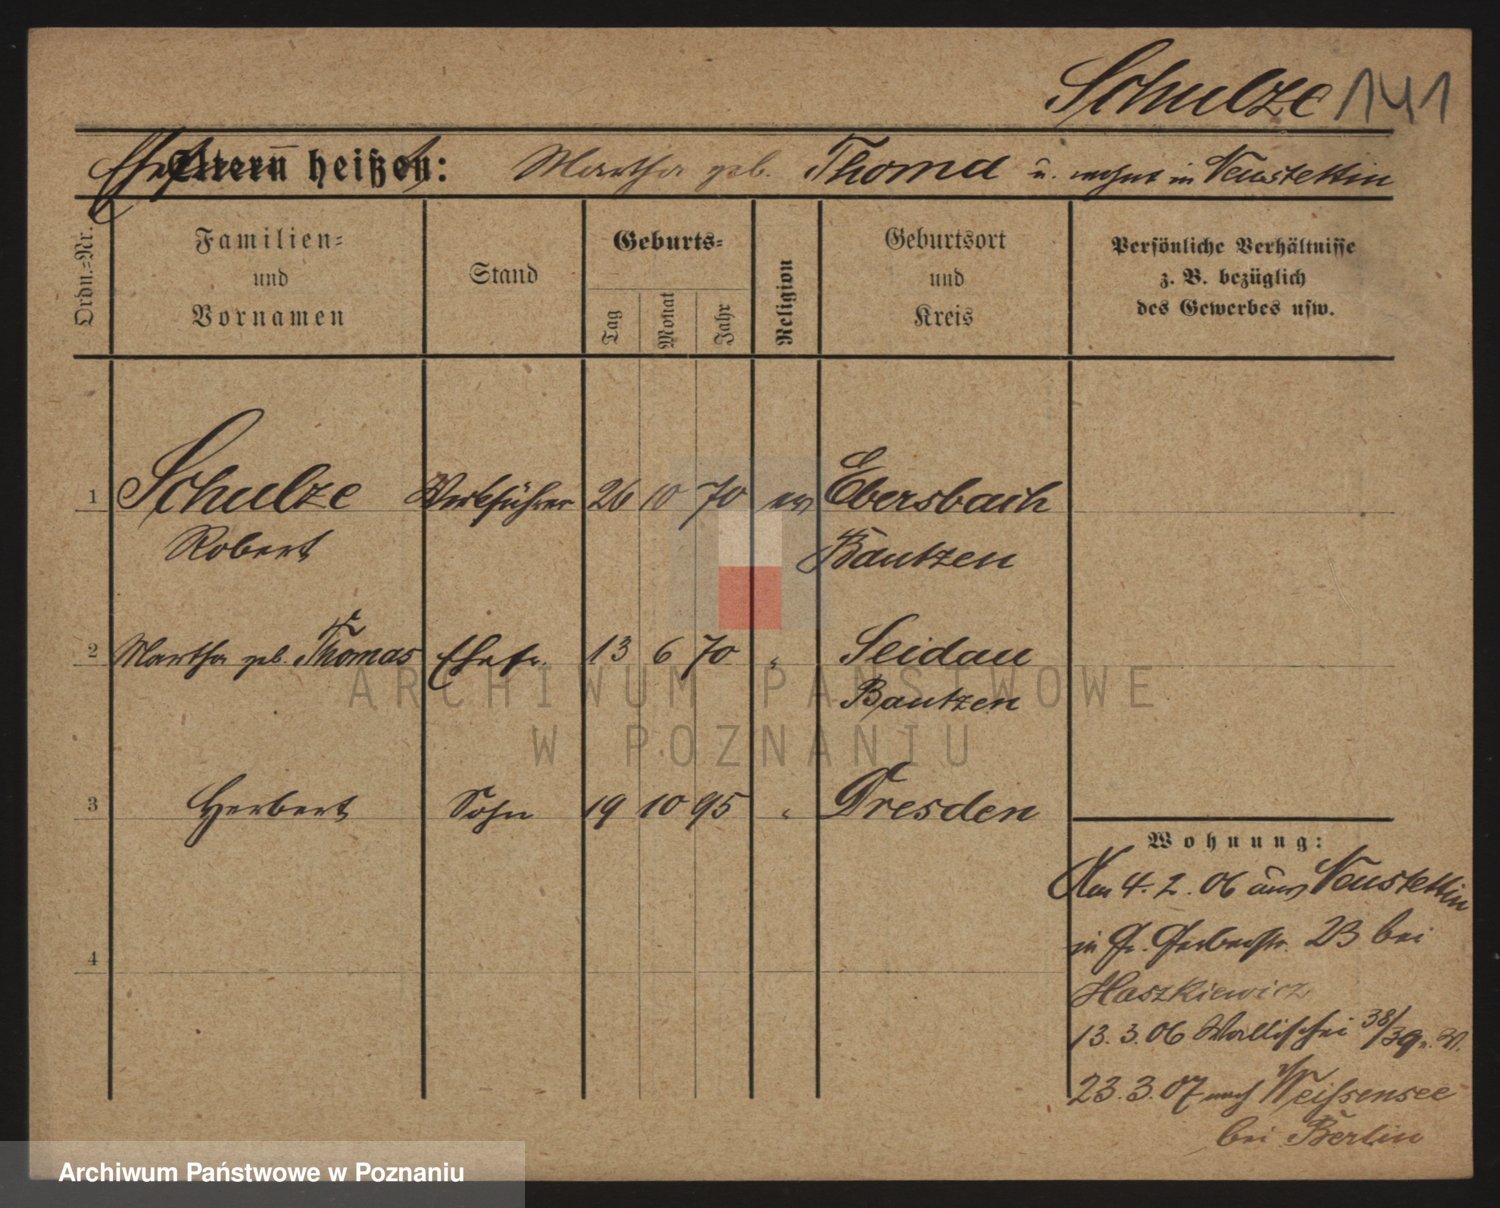 Schulze 141
Ehefr. Eltern heißen: Martha geb. Thomas u. wohnt in Neustettin
Ordn.-Nr.
Familien-
und
Vornamen
Stand
Geburts-
Tag
Monat
Jahr
Religion
Geburtsort
und
Kreis
Persönliche Verhältnisse
z. B. bezüglich
des Gewerbes usw.
1 Schulze Werkführer 26 10 70 ev Ebersbach
Robert Bautzen
2 Martha geb. Thomas Ehefr. 13 6 70 " Seidau
Bautzen
3 Herbert Sohn 19 10 95 " Dresden
4
Wohnung:
Am 4. 2. 06 aus Neustettin
in Gr. Gerberstr. 23 bei
Haszkiewicz
13. 3. 06 Wallischei 38/39
23. 3. 07 nach Weißensee
bei Berlin
ARCHIWUM PAŃSTWOWE
W POZNANIU
Archiwum Państwowe w Poznaniu